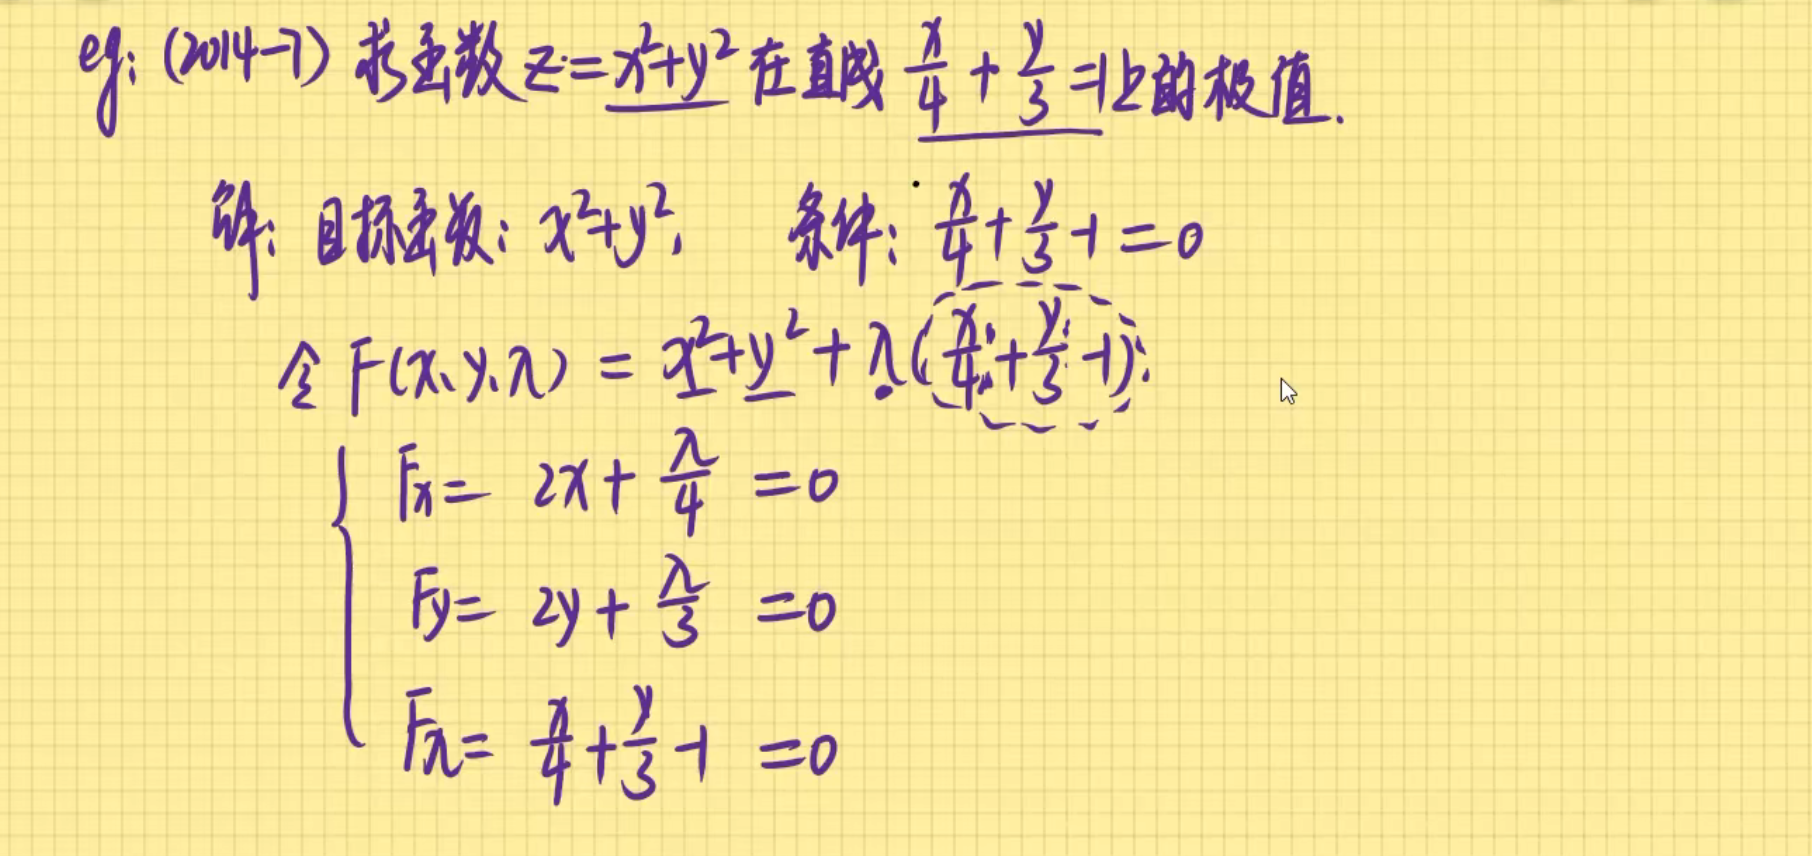 eg: (2014-7) 求函数 z=x²+y² 在直线 x/4 + y/3 =1上的极值.
解: 目标函数: x²+y², 条件: x/4 + y/3 -1 =0
令 F(x、y、λ) = x²+y² + λ(x/4 + y/3 -1):
Fx= 2x + λ/4 =0
Fy= 2y + λ/3 =0
Fλ= x/4 + y/3 -1 =0